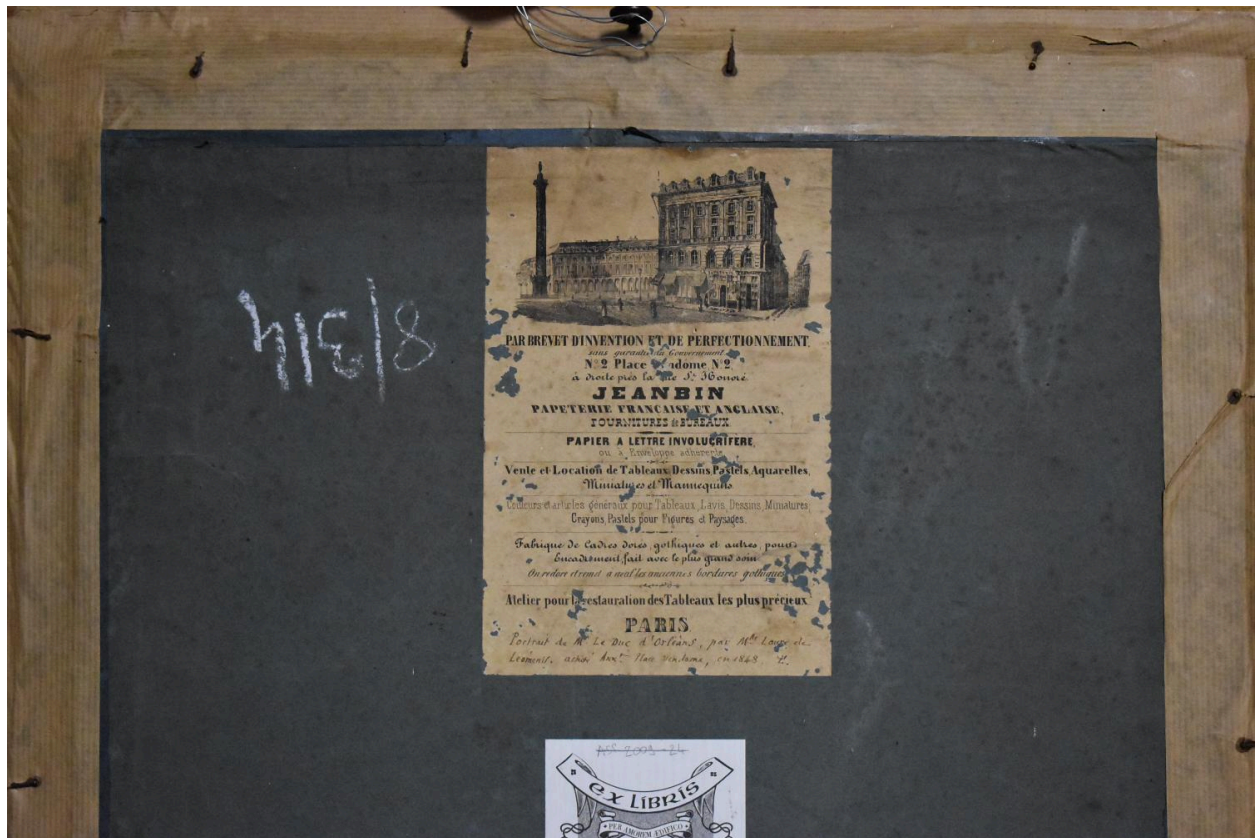 4/3/8
PAR BREVET D'INVENTION ET DE PERFECTIONNEMENT,
sans garantie du Gouvernement
Nº 2 Place Vendome Nº 2
à droite près la rue St. Honoré
JEANBIN
PAPETERIE FRANÇAISE ET ANGLAISE,
FOURNITURES de BUREAUX
PAPIER A LETTRE INVOLUCRIFERE,
ou à Enveloppe adhérente
Vente et Location de Tableaux, Dessins, Pastels, Aquarelles,
Miniatures et Mannequins
Couleurs et articles généraux pour Tableaux, Lavis, Dessins, Miniatures,
Crayons, Pastels pour Figures et Paysages.
Fabrique de Cadres dorés, gothiques et autres, pour
Encadrement, fait avec le plus grand soin
On redore et remet à neuf les anciennes bordures gothiques
Atelier pour la restauration des Tableaux les plus précieux
PARIS
Portrait de Mr Le Duc d'Orléans, par Louis de
Place Vendome, en 1848.
ASR 2009-24
EX LIBRIS
PER AMOREM ÆDIFICO